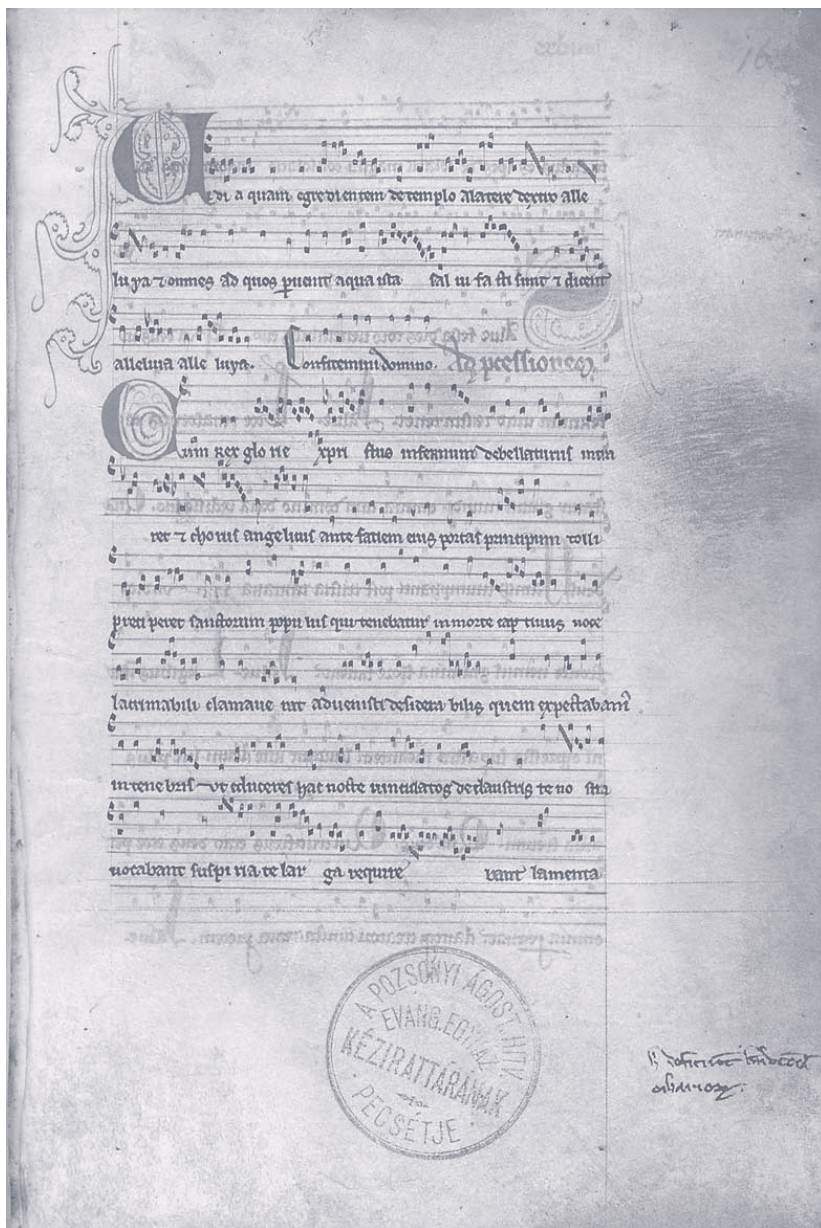 16
idi a quam egredientem de templo a latere dextro alle
lu ya ⁊ omnes ad quos puenit aqua ista sal ui fa cti sunt ⁊ dicent
alleluia alle luya. Confitemini domino. Ad pcessionem.
Cum rex glo rie xpri stus infernum debellaturus intra
ret ⁊ chorus angelicus ante faciem eius portas principum tolli
preci peret sanctorum popu lus qui tenebatur in morte cap tiuus uoce
lacrimabili clamaue rat advenisti desidera bilis quem expectabam
in tene bris ut educeres hac nocte uinculatos de claustris te no stra
uocabant suspi ria te lar ga require bant lamenta
A POZSONYI ÁGOST. HITV.
EVANG. EGYHÁZ
KÉZIRATTÁRÁNAK
PECSÉTJE